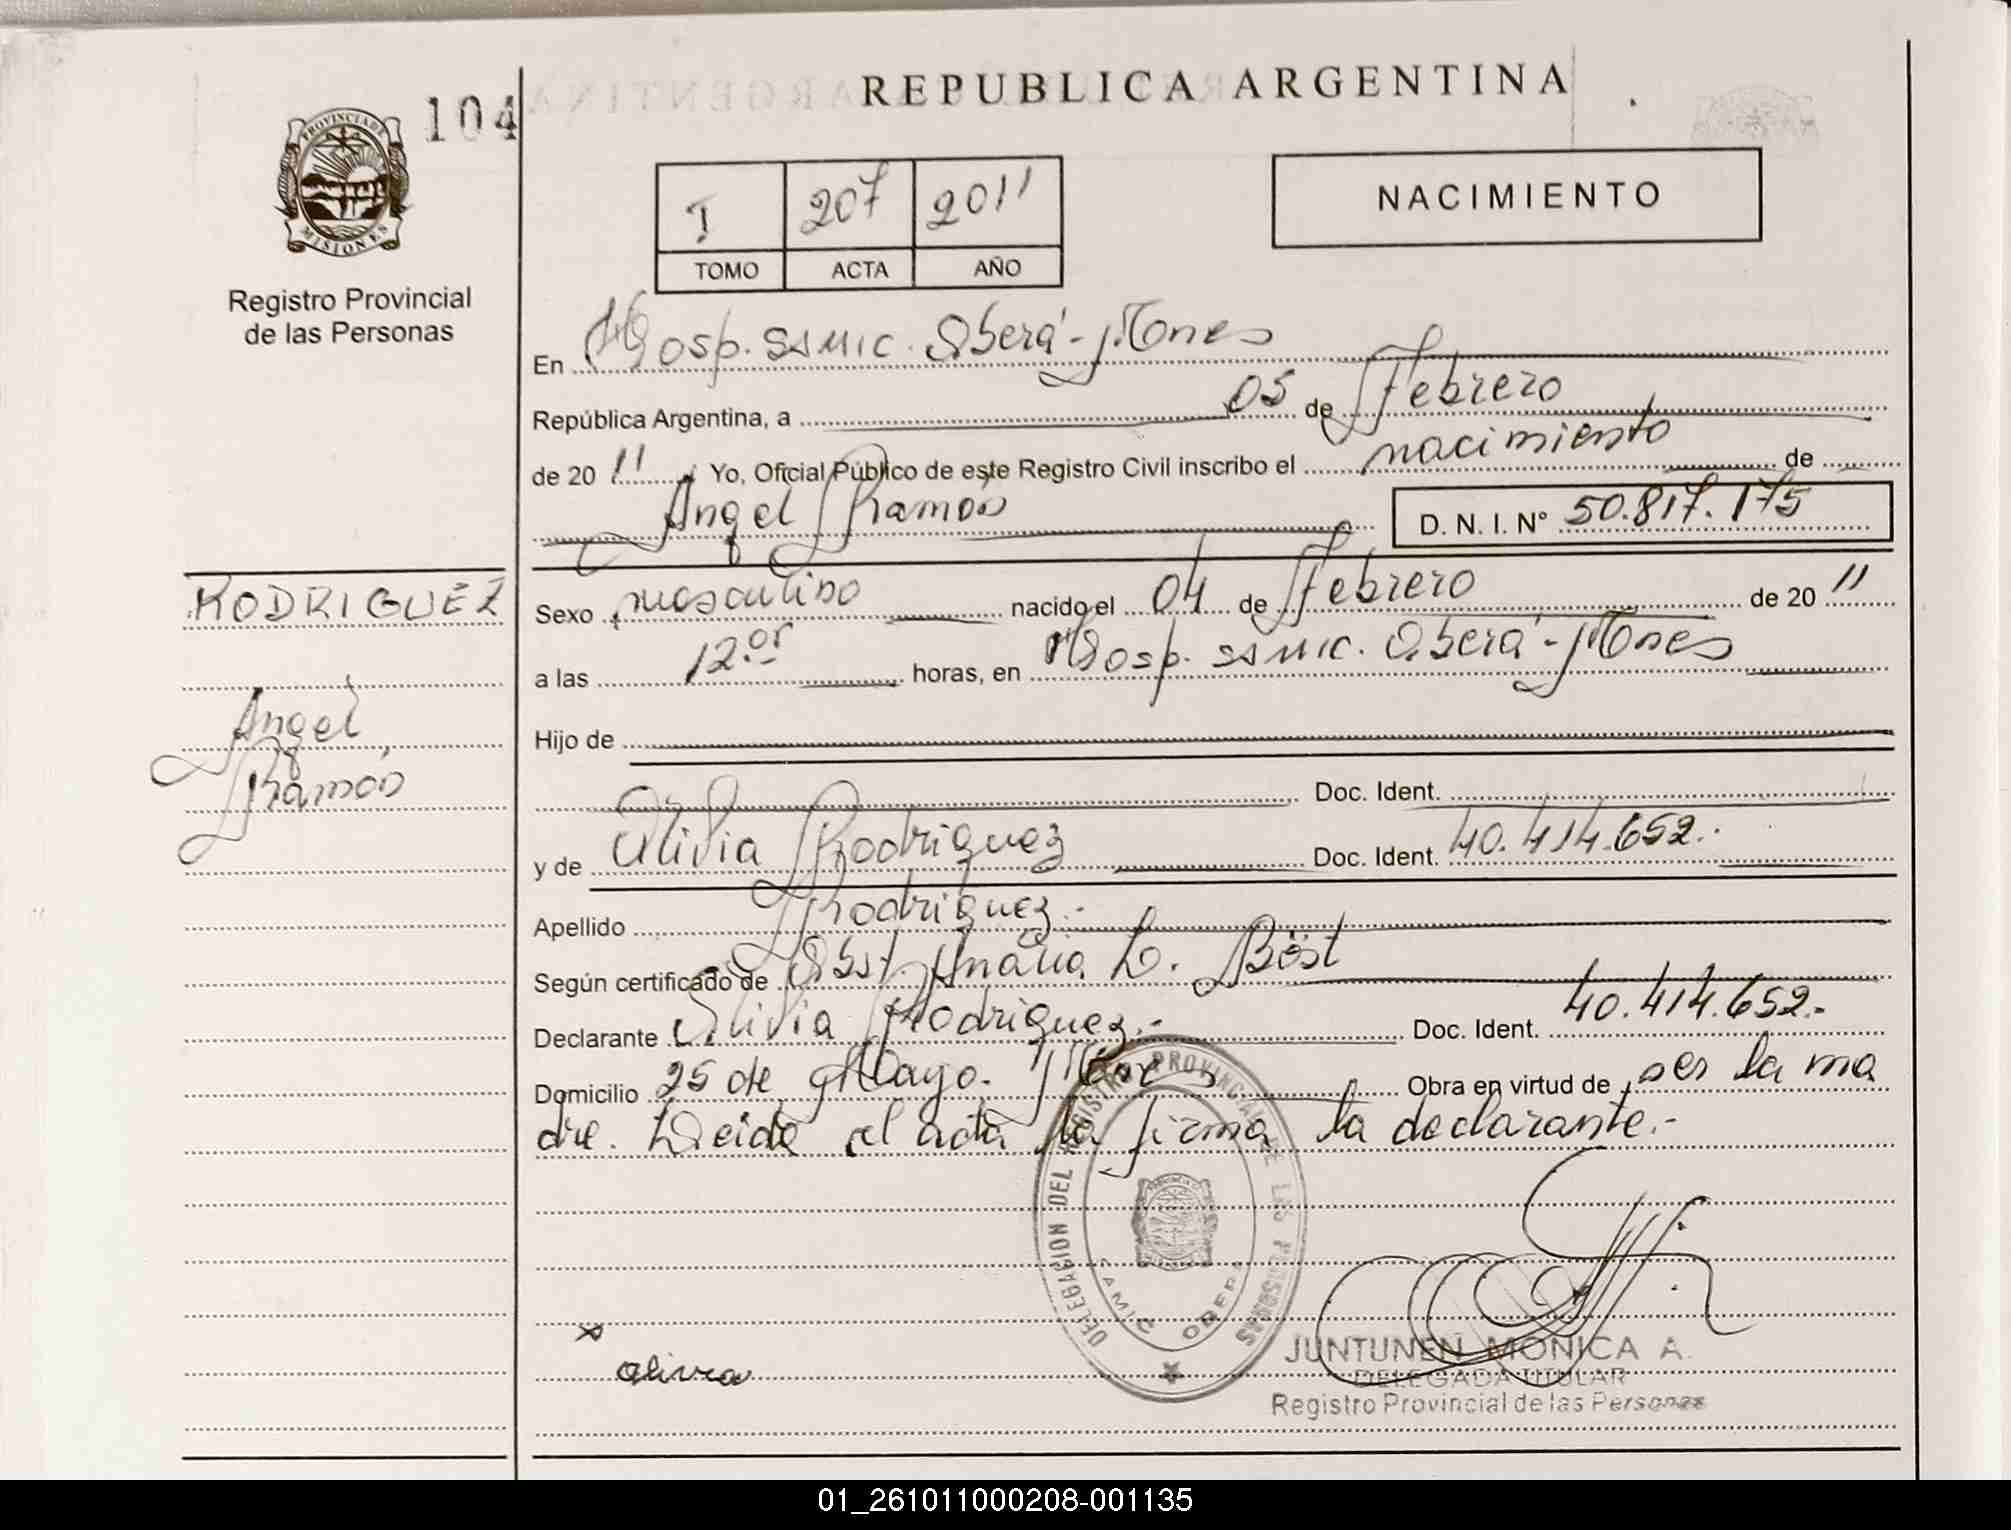 REPUBLICA ARGENTINA
104
PROVINCIA DE
MISIONES
Registro Provincial
de las Personas
I 207 2011
TOMO ACTA AÑO
NACIMIENTO
En Hosp. SAMIC. Oberá - Mones
República Argentina, a 05 de Febrero
de 20 11 Yo, Oficial Público de este Registro Civil inscribo el nacimiento de
Angel Ramón
D. N. I. N° 50.817.175
RODRIGUEZ
Angel
Ramón
Sexo masculino nacido el 04 de Febrero de 20 11
a las 12.or horas, en Hosp. SAMIC. Oberá - Mones
Hijo de
Doc. Ident.
y de Olivia Rodriguez Doc. Ident. 40.414.652.-
Apellido Rodriguez.-
Según certificado de Obst. Maria L. Böst
Declarante Olivia Rodriguez.- Doc. Ident. 40.414.652.-
Domicilio 25 de Mayo. Mones Obra en virtud de ser la ma
dre. Leida el acta la firma la declarante.-
DELEGACION DEL REGISTRO PROVINCIAL DE LAS PERSONAS
SAMIC OBERA
x
olivia
JUNTUNEN MONICA A.
DELEGADA TITULAR
Registro Provincial de las Personas
01_261011000208-001135